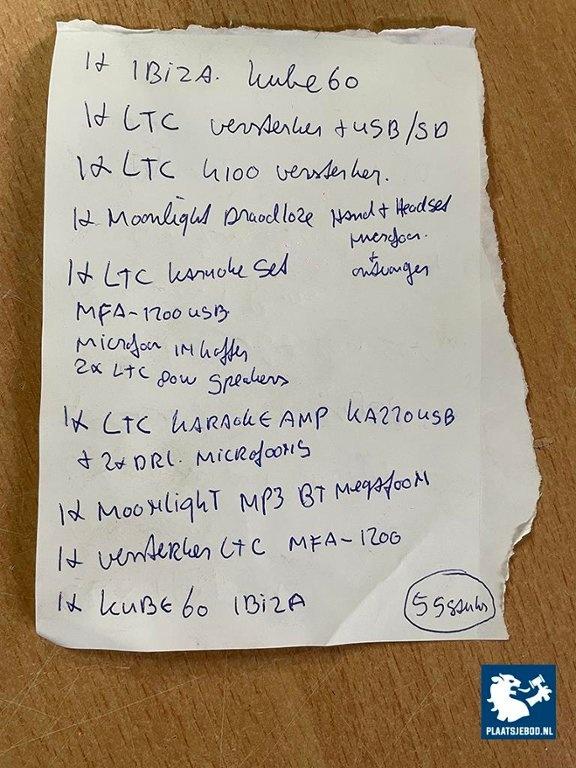 1x IBIZA. Kube 60
1x LTC versterker + USB/SD
1x LTC K100 versterker.
1x Moonlight Draadloze Hand + Headset
microfoon.
+
ontvanger
1x LTC Karaoke Set
MFA-1200 USB
Microfoon in koffer
2x LTC 80w Speakers
1x LTC KARAOKE AMP KA220USB
+ 2x DRL. MICROFOONS
1x MOONLIGHT MP3 BT Megafoon
1x versterker LTC MFA-1200
1x KUBE 60 IBIZA
PLAATSJEBOD.NL